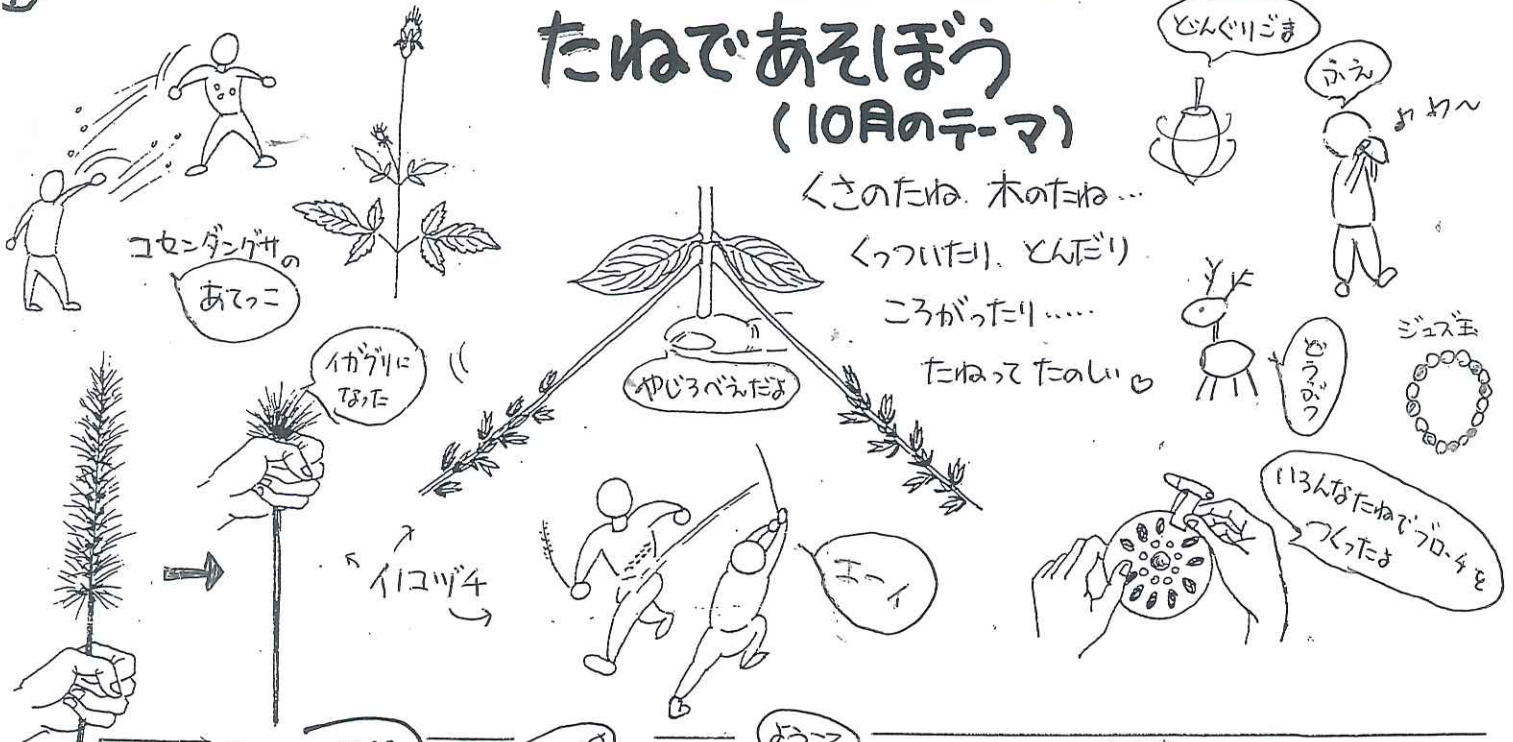 たねであそぼう
(10月のテーマ)
くさのたね、木のたね…
くっついたり、とんだり
ころがったり……
たねって たのしい♡
どんぐりごま
ふえ
コセンダングサの
あてっこ
イガグリに
なった
やじろべえだよ
どうぶつ
ジュズ玉
イノコヅチ
エーイ
いろんなたねでブローチを
つくったよ
ようこそ